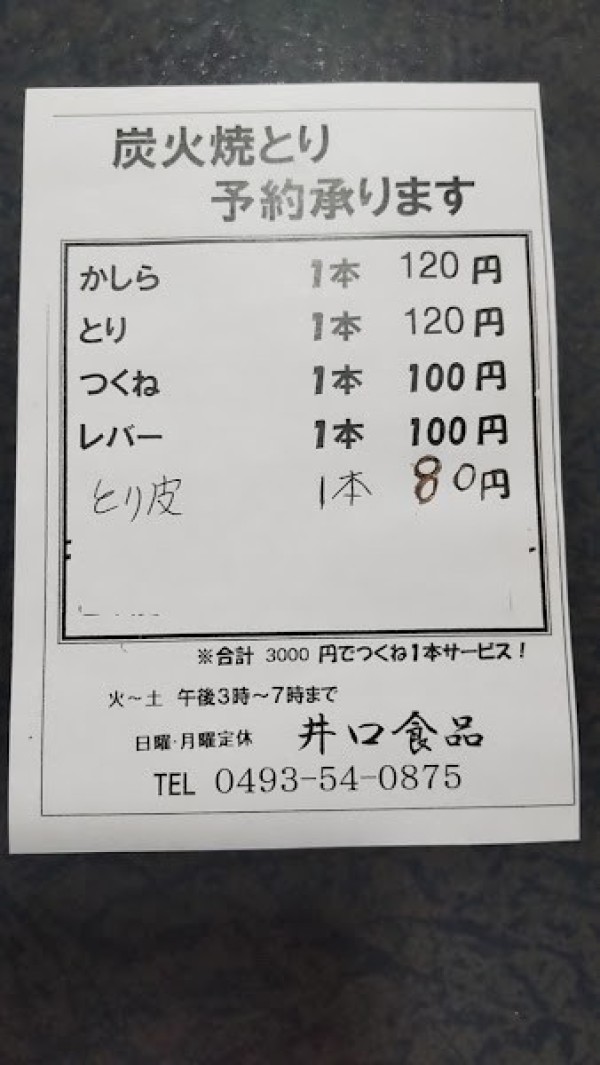 炭火焼とり
予約承ります
かしら 1本 120円
とり 1本 120円
つくね 1本 100円
レバー 1本 100円
とり皮 1本 80円
※合計 3000 円でつくね1本サービス!
火~土 午後3時~7時まで
日曜・月曜定休 井口食品
TEL 0493-54-0875